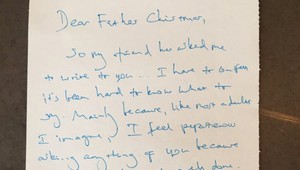 Dear Father Christmas,
So my friend has asked me
to write to you... I have to confess
it's been hard to know what to
say. Mainly because, like most adults
I imagine, I feel
asking anything of you because
done.